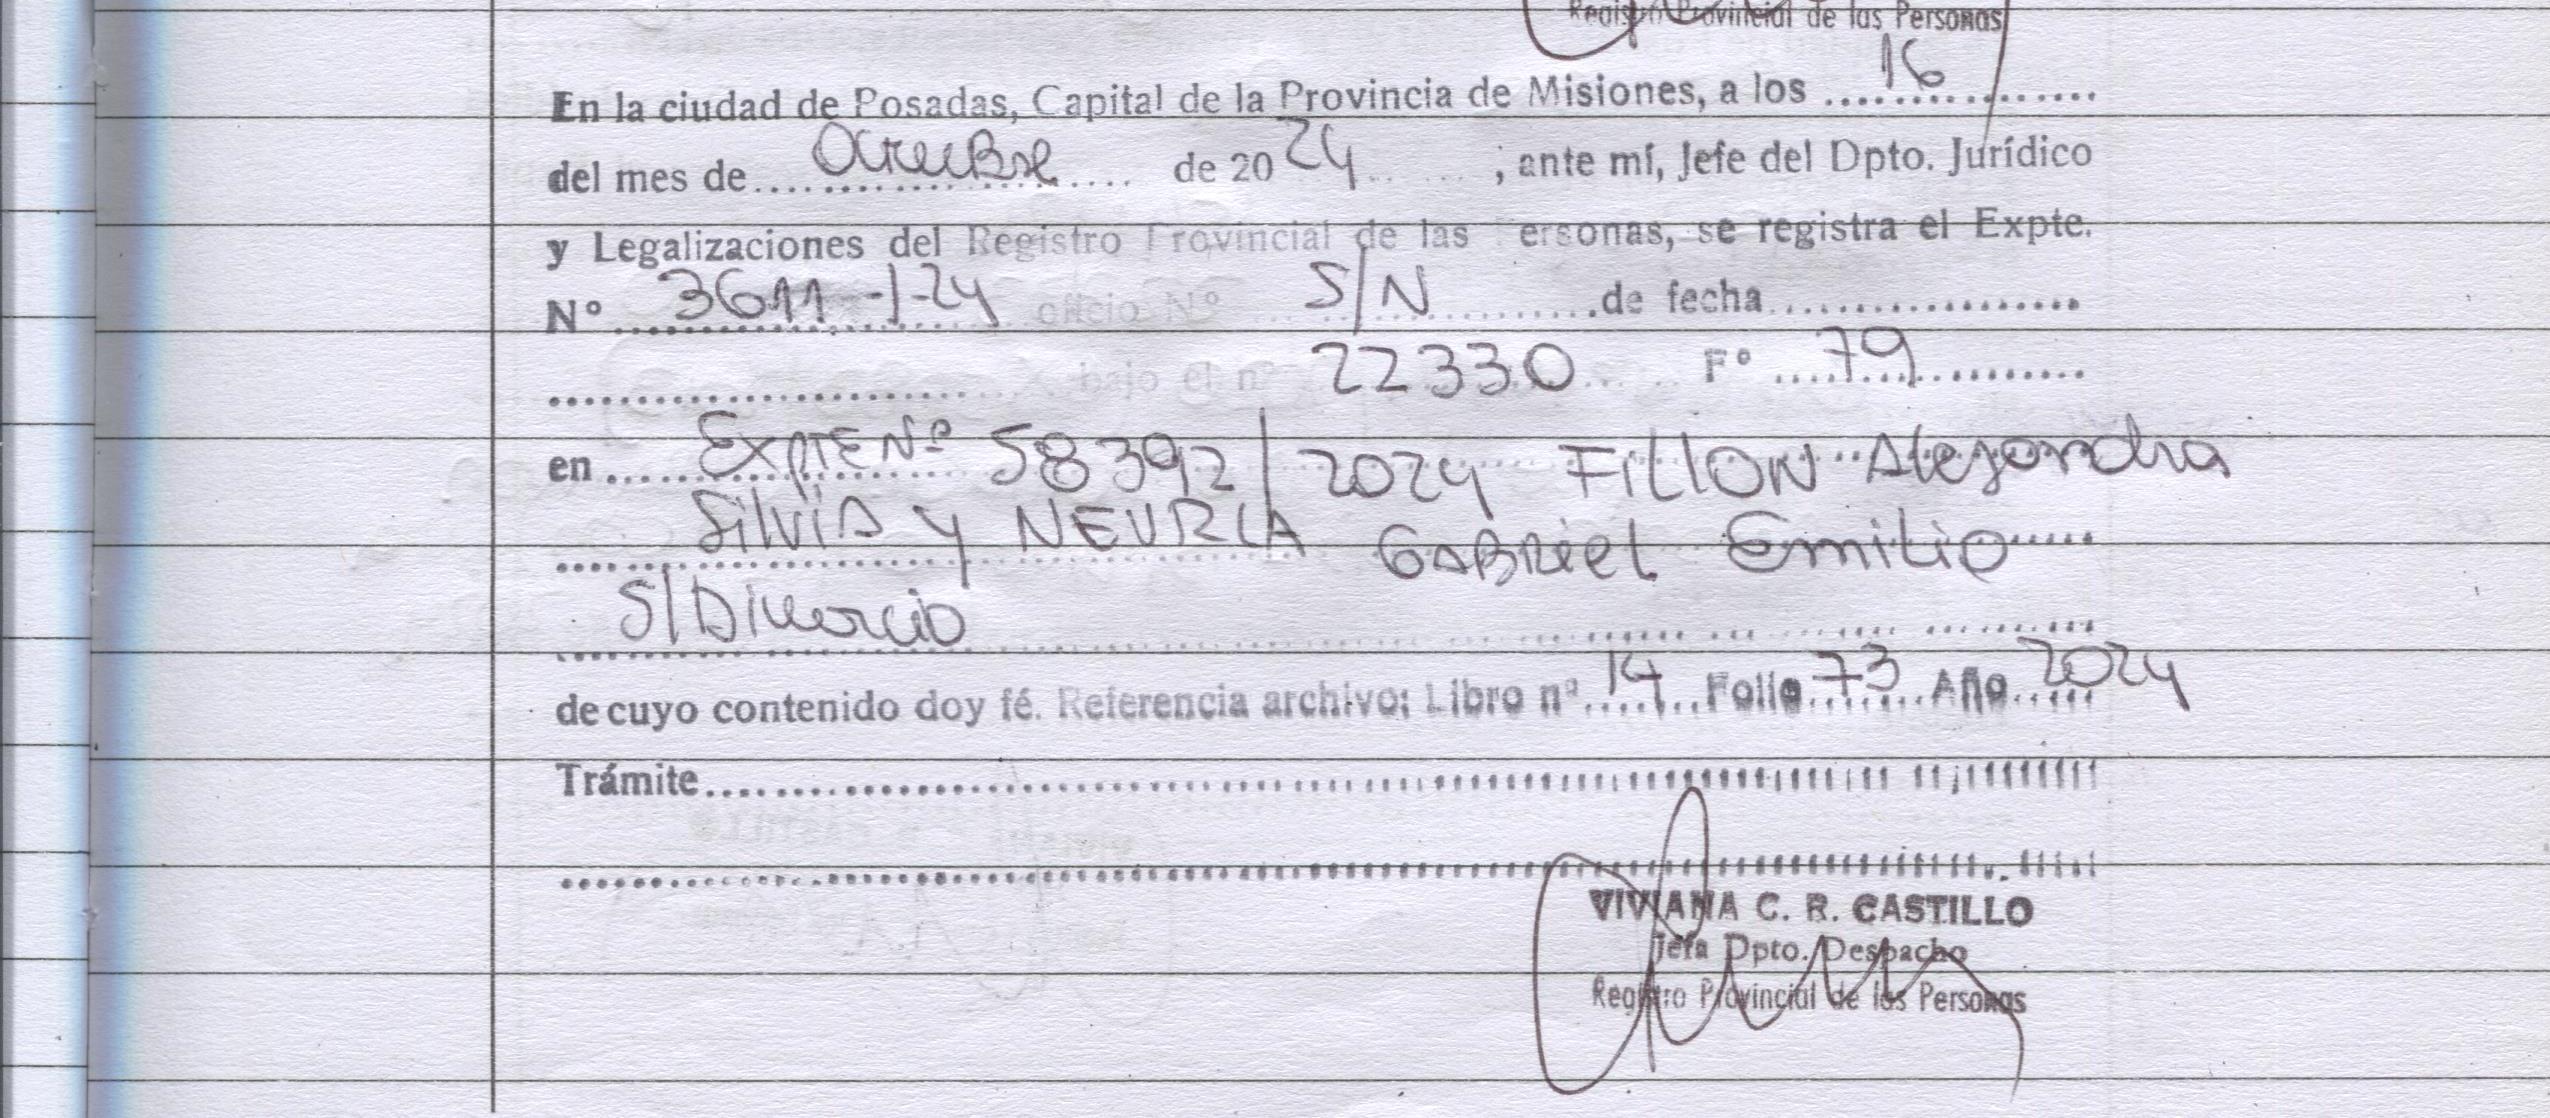 Registro Provincial de las Personas
En la ciudad de Posadas, Capital de la Provincia de Misiones, a los 16
del mes de Octubre de 2024 ; ante mí, Jefe del Dpto. Jurídico
y Legalizaciones del Registro Provincial de las Personas, se registra el Expte.
Nº 3611-1-24 oficio Nº S/N de fecha
bajo el nº 22330 Fº 79
en Expte Nº 58392/2024 Fillon Alejandra
Silvia y NEVRLA Gabriel Emilio
S/Divorcio
de cuyo contenido doy fé. Referencia archivo: Libro nº 14 Folio 73 Año 2024
Trámite
VIVIANA C. R. CASTILLO
Jefa Dpto. Despacho
Registro Provincial de las Personas